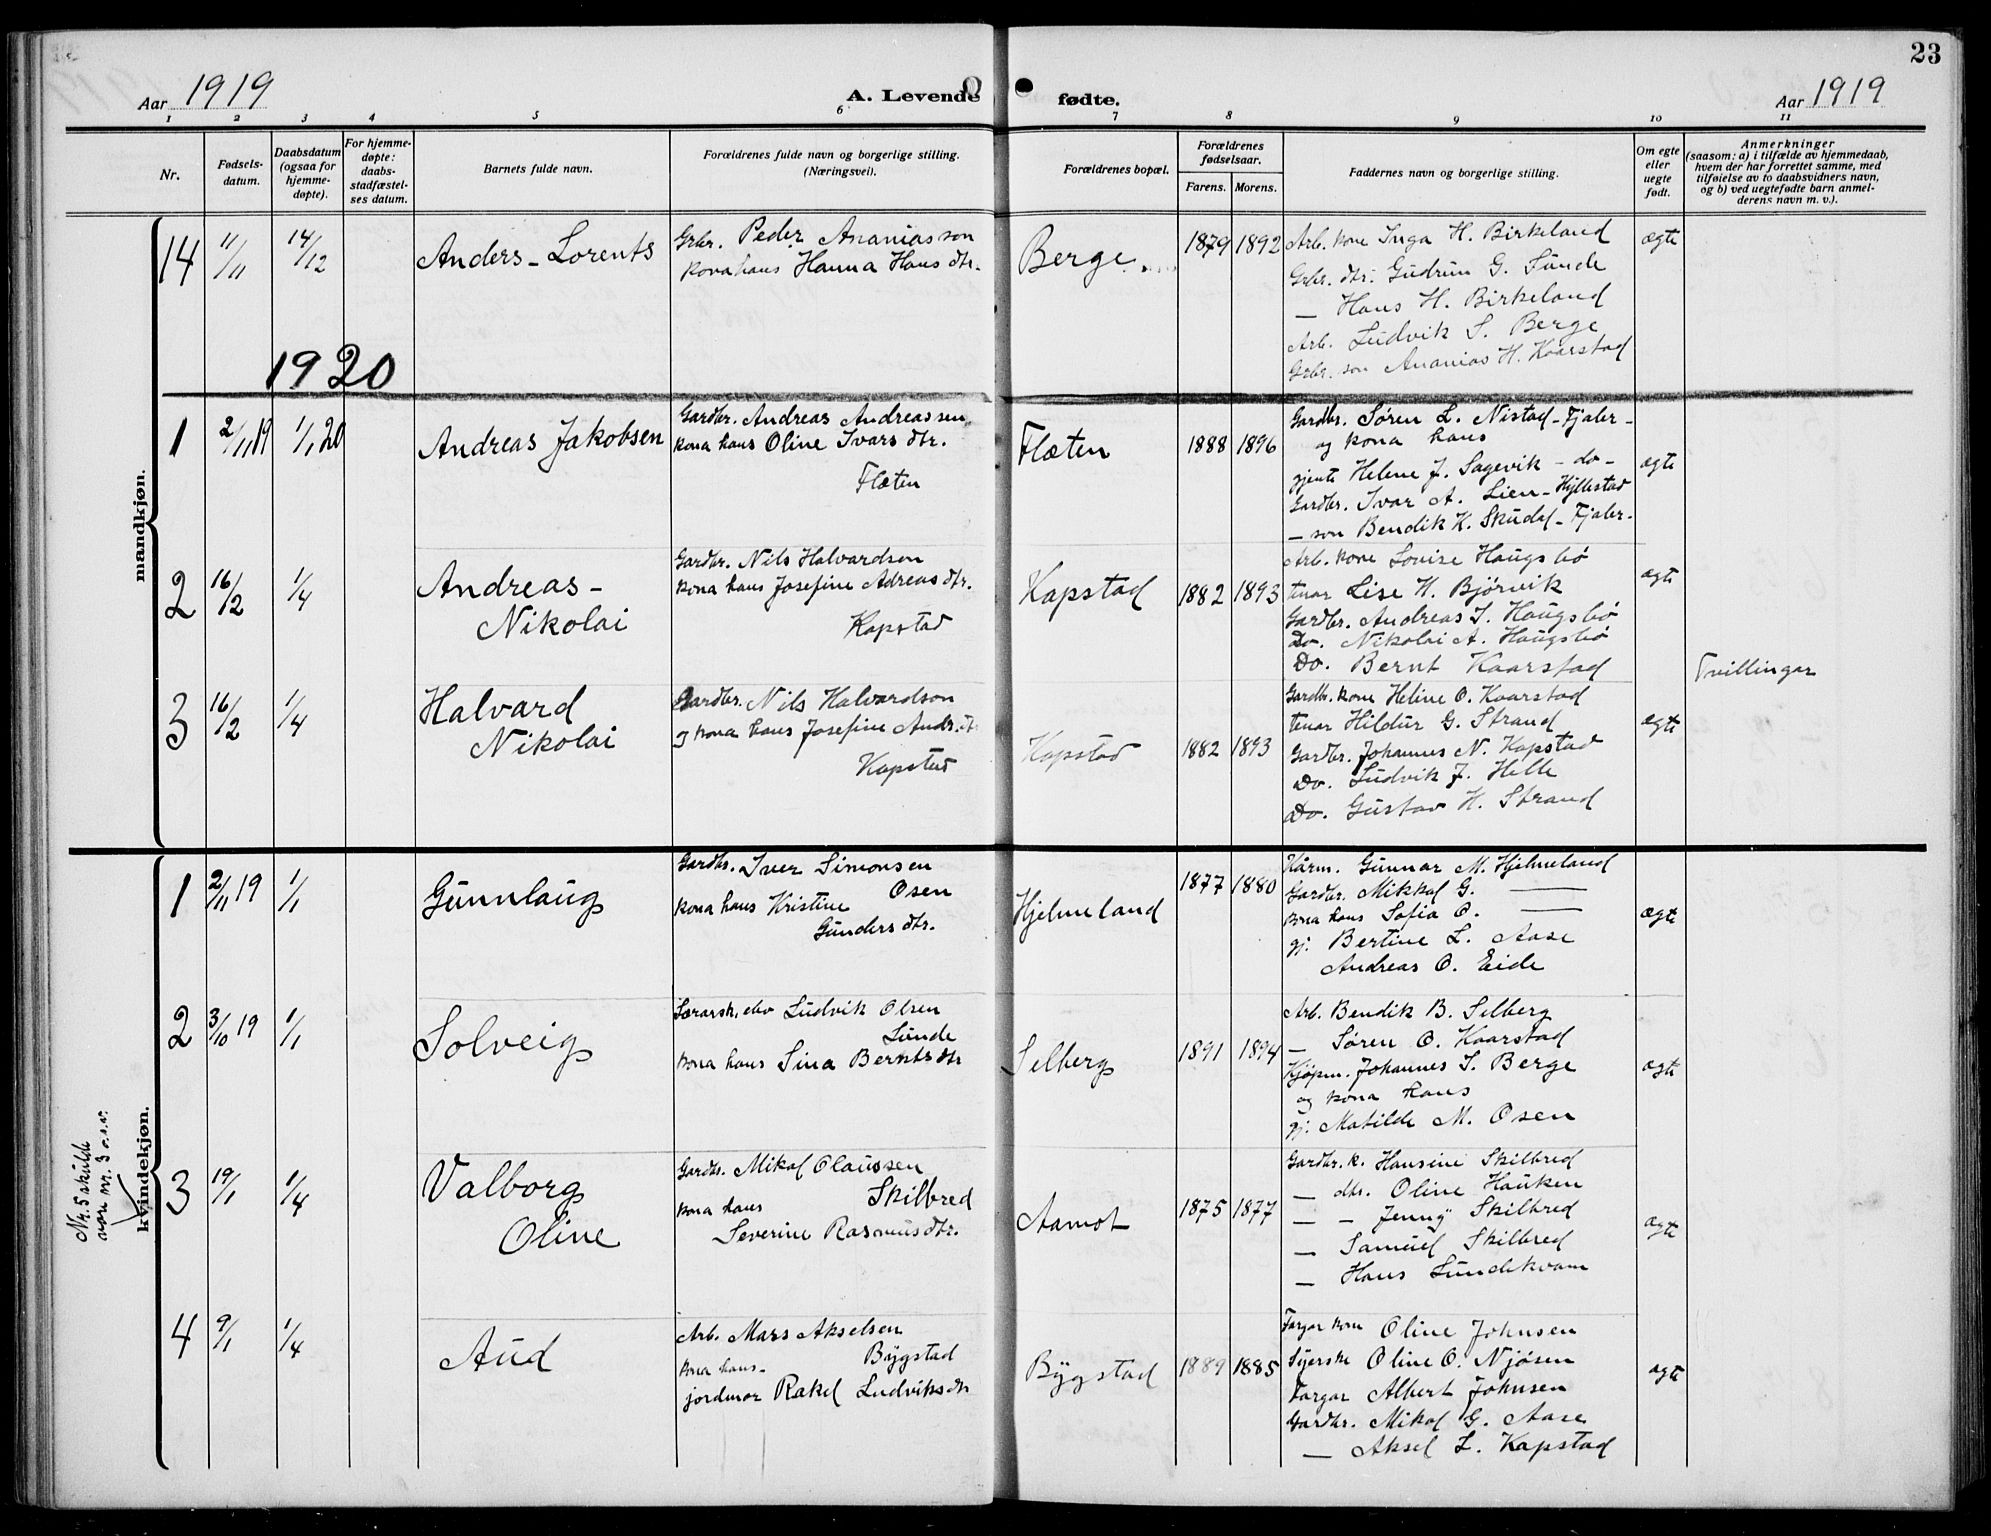 23
Aar 1919
A. Levende fødte.
Aar 1919
1 2 3 4 5 6 7 8 9 10 11
Nr.
Fødsels-
datum.
Daabsdatum
(ogsaa for
hjemme-
døpte).
For hjemme-
døpte:
daabs-
stadfæstel-
ses datum.
Barnets fulde navn.
Forældrenes fulde navn og borgerlige stilling.
(Næringsvei).
Forældrenes bopæl.
Forældrenes
fødselsaar.
Farens. Morens.
Faddernes navn og borgerlige stilling.
Om egte
eller
uegte
født.
Anmerkninger
(saasom: a) i tilfælde av hjemmedaab,
hvem der har forrettet samme, med
tilføielse av to daabsvidners navn,
og b) ved uegtefødte barn anmel-
derens navn m. v.).
mandkjøn.
14 11/11 14/12 Anders-Lorents
Grbr. Peder Ananiasson
kona hans Hanna Hans dtr.
Berge 1879 1892
Arb. kone Inga H. Birkeland
Grbr. dtr. Gudrun G. Sunde
— Hans H. Birkeland
Arb. Ludvik S. Berge
Grbr. son Ananias H. Kaarstad
ægte
1920
1 2/11 19 1/1 20 Andreas Jakobsen
Gardbr. Andreas Andreassen
kona hans Oline Ivars dtr.
Flæten
Flæten 1888 1896
Gardbr. Søren L. Nistad - Fjaler -
og kona hans
gjente Helene J. Sagevik - do -
Gardbr. Ivar A. Lien - Hyllestad
— son Bendik K. Skudal - Fjaler -
ægte
2 16/2 1/4 Andreas-
Nikolai
Gardbr. Nils Halvardson
kona hans Josefine Adreas dtr.
Kapstad
Kapstad 1882 1893
Arb. kone Lovise Haugsbø
tenar Lise H. Bjørvik
Gardbr. Andreas I. Haugsbø
Do. Nikolai A. Haugsbø
Do. Bernt Kaarstad
ægte
Tvillingar
3 16/2 1/4 Halvard
Nikolai
Gardbr. Nils Halvardson
og kona hans Josefine Andr. dt
Kapstad
Kapstad 1882 1893
Gardbr. kone Heline O. Kaarstad
tenar Hildur G. Strand
Gardbr. Johannes N. Kapstad
Do. Ludvik J. Helle
Do. Gustav H. Strand
egte
kvindekjøn.
Nr. 5 skulde
vore nr. 3 o.s.v.
1 2/11 19 1/1 Gunnlaug
Gardbr. Iver Simonsen
Osen
kona hans Kristine
Gunders dtr.
Hjelmeland 1877 1880
Kårm. Gunnar M. Hjelmeland
Gardbr. Mikkal G. ——
kona hans Sofia O. ——
gj. Bertine L. Aase
Andreas O. Eide
ægte
2 3/10 19 1/1 Solveig
Lærarsk. elev Ludvik Olsen
Sunde
kona hans Sina Bernts dtr
Selberg 1891 1894
Arb. Bendik B. Selberg
— Søren O. Kaarstad
Kjøpm. Johannes S. Berge
og kona hans
gj. Matilde M. Osen
ægte
3 19/1 1/4 Valborg
Oline
Gardbr. Mikal Olaussen
Skilbred
kona hans
Severine Rasmusdtr.
Aamot 1875 1877
Gardbr. k. Hansine Skilbred
— dtr. Oline Hauken
— - Jenny Skilbred
— Samuel Skilbred
— Hans Lundekvam
ægte
4 9/1 1/4 Aud
Arb. Mars Akselsen
Bygstad
kona hans-
jordmor Rakel Ludviks dtr
Bygstad 1889 1885
Fargar kone Oline Johnsen
Syerske Oline O. Njøsen
Fargar Albert Johnsen
Gardbr. Mikal G. Aase
— Aksel L. Kapstad
ægte